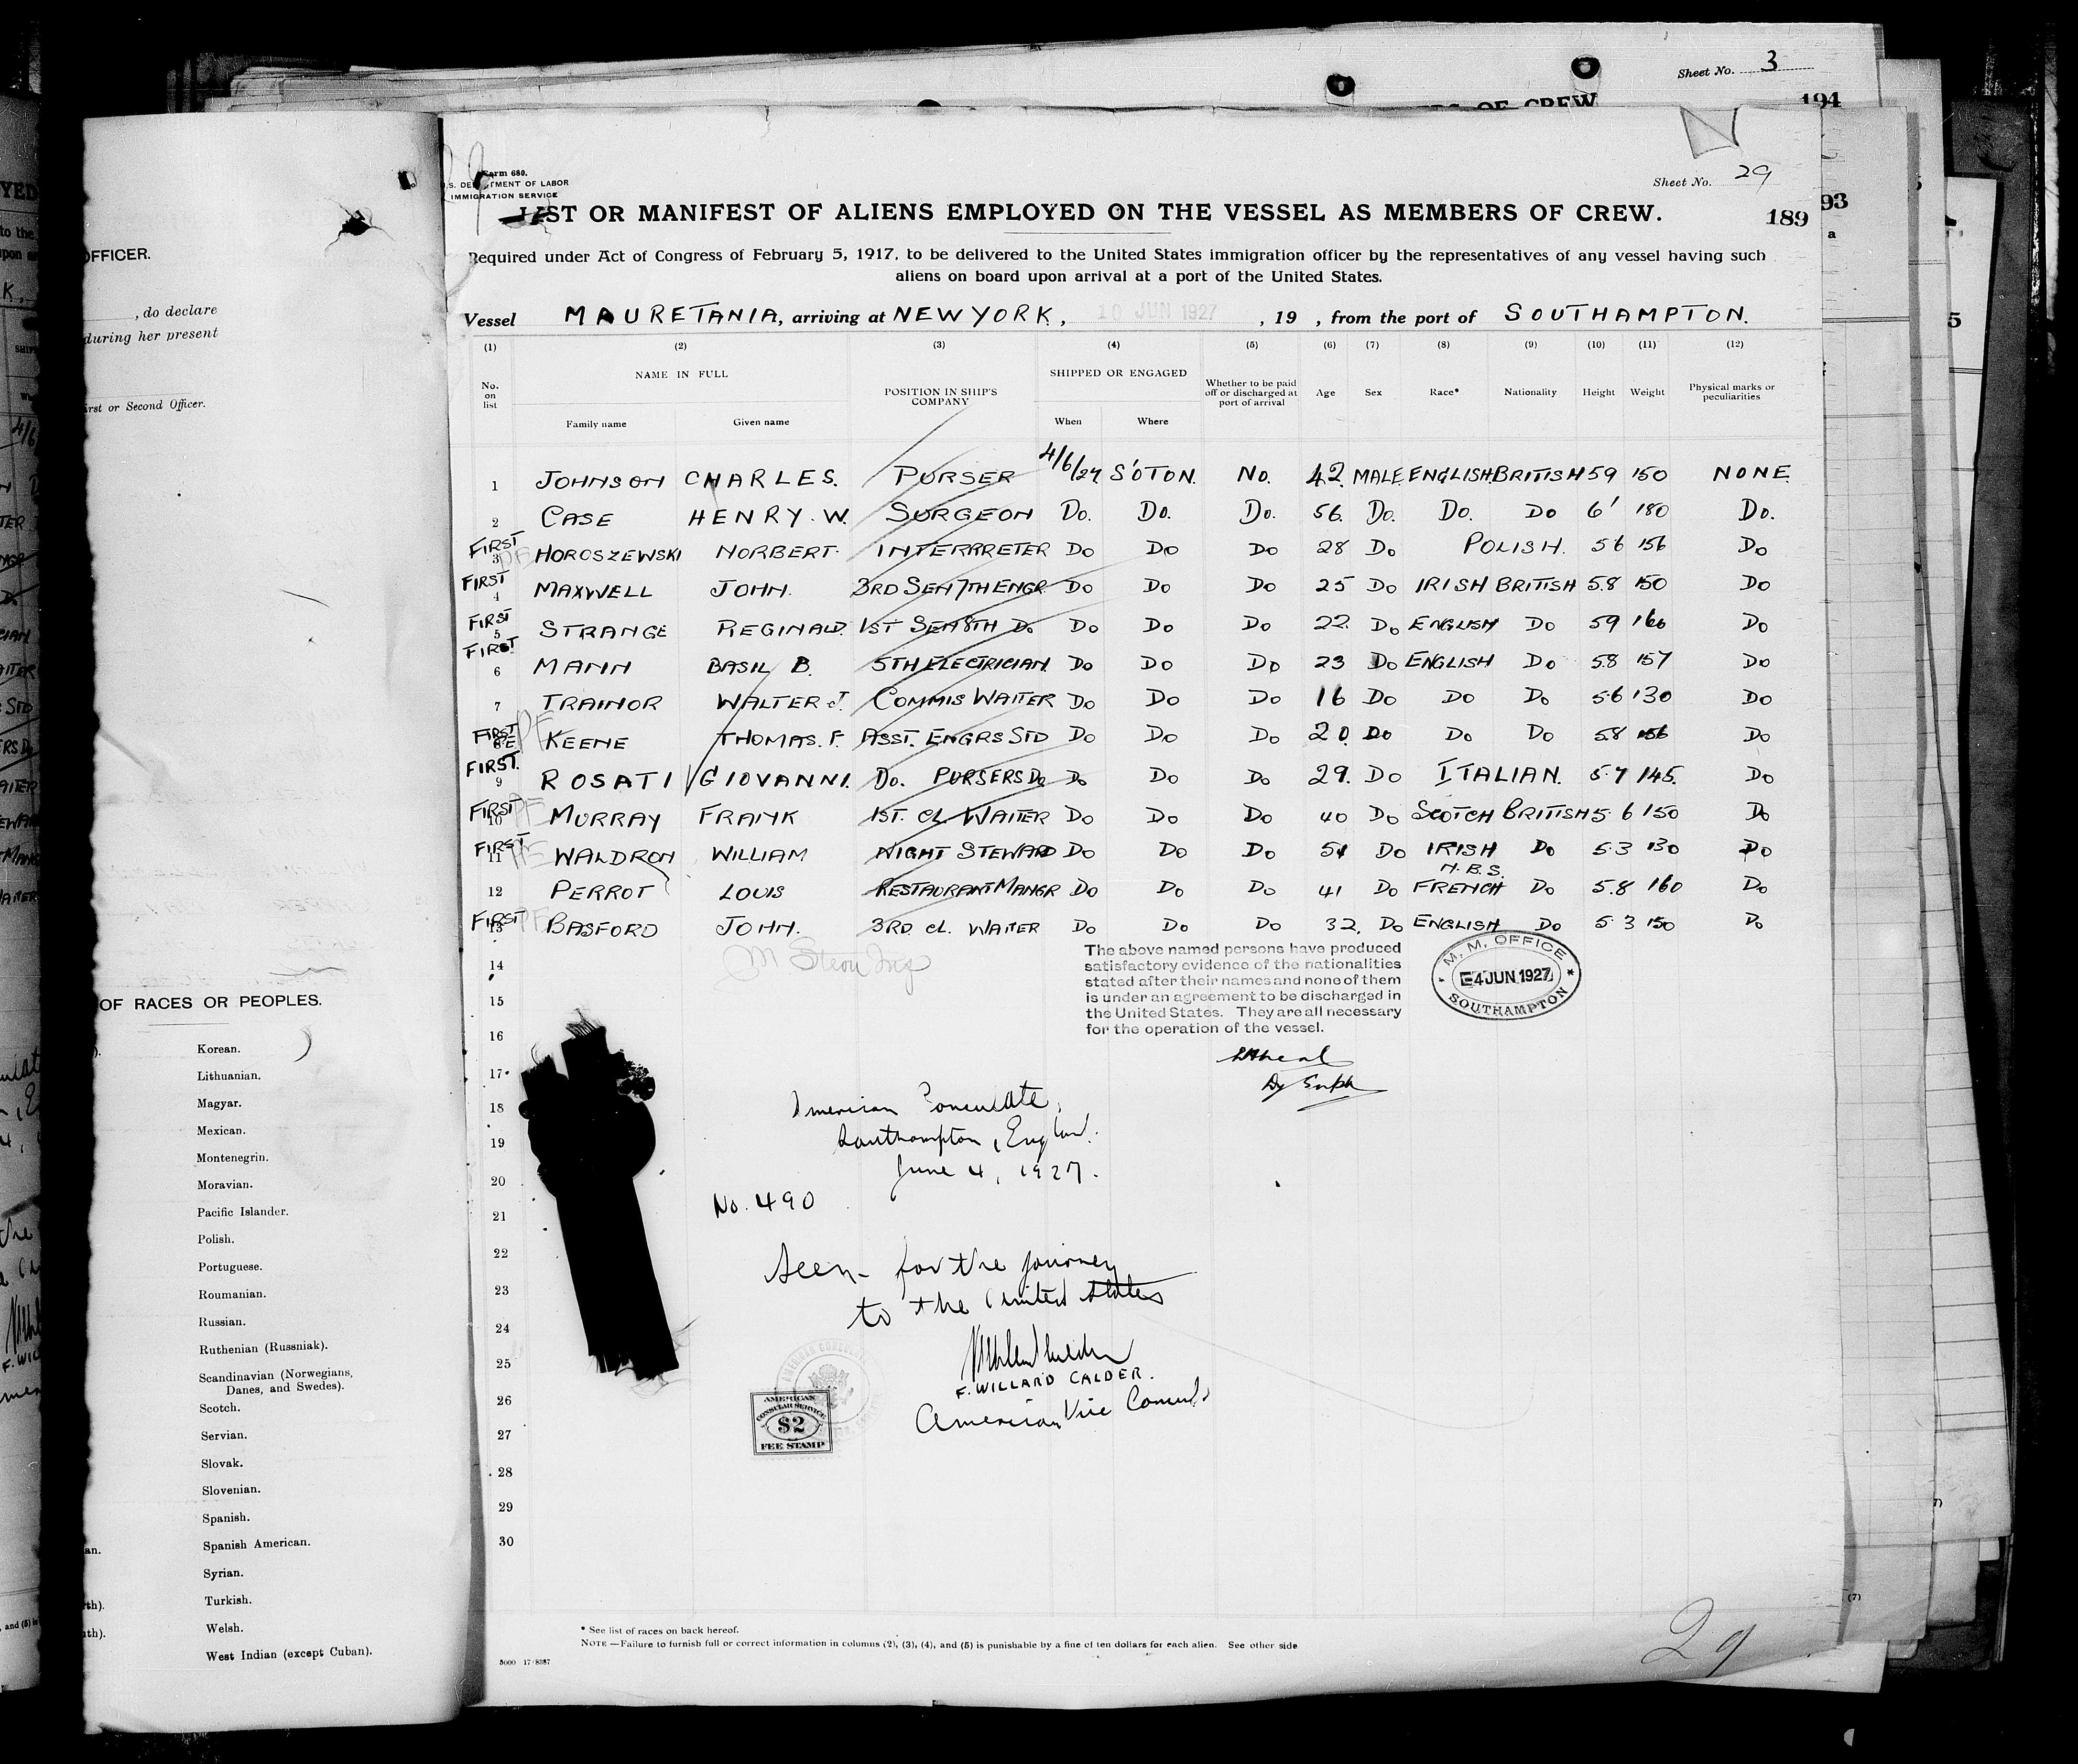 Sheet No. 3
S OF CREW
194
OFFICER.
, do declare
during her present
First or Second Officer.
OF RACES OR PEOPLES.
Korean.
Lithuanian.
Magyar.
Mexican.
Montenegrin.
Moravian.
Pacific Islander.
Polish.
Portuguese.
Roumanian.
Russian.
Ruthenian (Russniak).
Scandinavian (Norwegians,
Danes, and Swedes).
Scotch.
Servian.
Slovak.
Slovenian.
Spanish.
Spanish American.
Syrian.
Turkish.
Welsh.
West Indian (except Cuban).
Form 680.
U.S. DEPARTMENT OF LABOR
IMMIGRATION SERVICE
Sheet No. 29
LIST OR MANIFEST OF ALIENS EMPLOYED ON THE VESSEL AS MEMBERS OF CREW.
189
93
Required under Act of Congress of February 5, 1917, to be delivered to the United States immigration officer by the representatives of any vessel having such
aliens on board upon arrival at a port of the United States.
Vessel MAURETANIA, arriving at NEW YORK, 10 JUN 1927, 19 , from the port of SOUTHAMPTON.
(1) (2) (3) (4) (5) (6) (7) (8) (9) (10) (11) (12)
No. on list NAME IN FULL POSITION IN SHIP'S COMPANY SHIPPED OR ENGAGED Whether to be paid off or discharged at port of arrival Age Sex Race* Nationality Height Weight Physical marks or peculiarities
Family name Given name When Where
1 JOHNSON CHARLES. PURSER 4/6/27 S'OTON. NO. 42. MALE. ENGLISH. BRITISH 59 150 NONE
2 CASE HENRY. W. SURGEON DO. DO. DO. 56. DO. DO. DO 6' 180 DO.
FIRST 3 HOROSZEWSKI NORBERT. INTERPRETER DO DO DO 28 DO POLISH. 56 156 DO
FIRST 4 MAXWELL JOHN. 3RD SEN 7TH ENGR. DO DO DO 25 DO IRISH BRITISH 5.8 150 DO
FIRST 5 STRANGE REGINALD. 1ST SEN 8TH DO DO DO DO 22 DO ENGLISH DO 59 160 DO
FIRST 6 MANN BASIL B. 5TH ELECTRICIAN DO DO DO 23 DO ENGLISH DO 58 157 DO
7 TRAINOR WALTER J. COMMIS WAITER DO DO DO 16 DO DO DO 5.6 130 DO
FIRST 8 KEENE THOMAS. F. ASST. ENGRS STD DO DO DO 20. DO DO DO 58 156 DO
FIRST. 9 ROSATI GIOVANNI. DO. PURSERS DO DO DO DO 29. DO ITALIAN. 5.7 145. DO
FIRST 10 MURRAY FRANK 1ST. CL. WAITER DO DO DO 40 DO SCOTCH BRITISH 5.6 150 DO
FIRST 11 WALDRON WILLIAM NIGHT STEWARD DO DO DO 51 DO IRISH DO 5.3 130 DO
N.B.S.
12 PERROT LOUIS RESTAURANT MANGR DO DO DO 41 DO FRENCH DO 5.8 160 DO
FIRST 13 BASFORD JOHN. 3RD CL. WAITER DO DO DO 32. DO ENGLISH DO 5 3 150 DO
14
15
16
17
18
19
20
21
22
23
24
25
26
27
28
29
30
The above named persons have produced
satisfactory evidence of the nationalities
stated after their names and none of them
is under an agreement to be discharged in
the United States. They are all necessary
for the operation of the vessel.
M. M. OFFICE
4 JUN 1927
SOUTHAMPTON
American Consulate,
Southampton, England.
June 4, 1927.
No. 490
Seen for the journey
to the United States
F. WILLARD CALDER.
American Vice Consul
AMERICAN
CONSULAR SERVICE
$2
FEE STAMP
* See list of races on back hereof.
NOTE.—Failure to furnish full or correct information in columns (2), (3), (4), and (5) is punishable by a fine of ten dollars for each alien. See other side
29